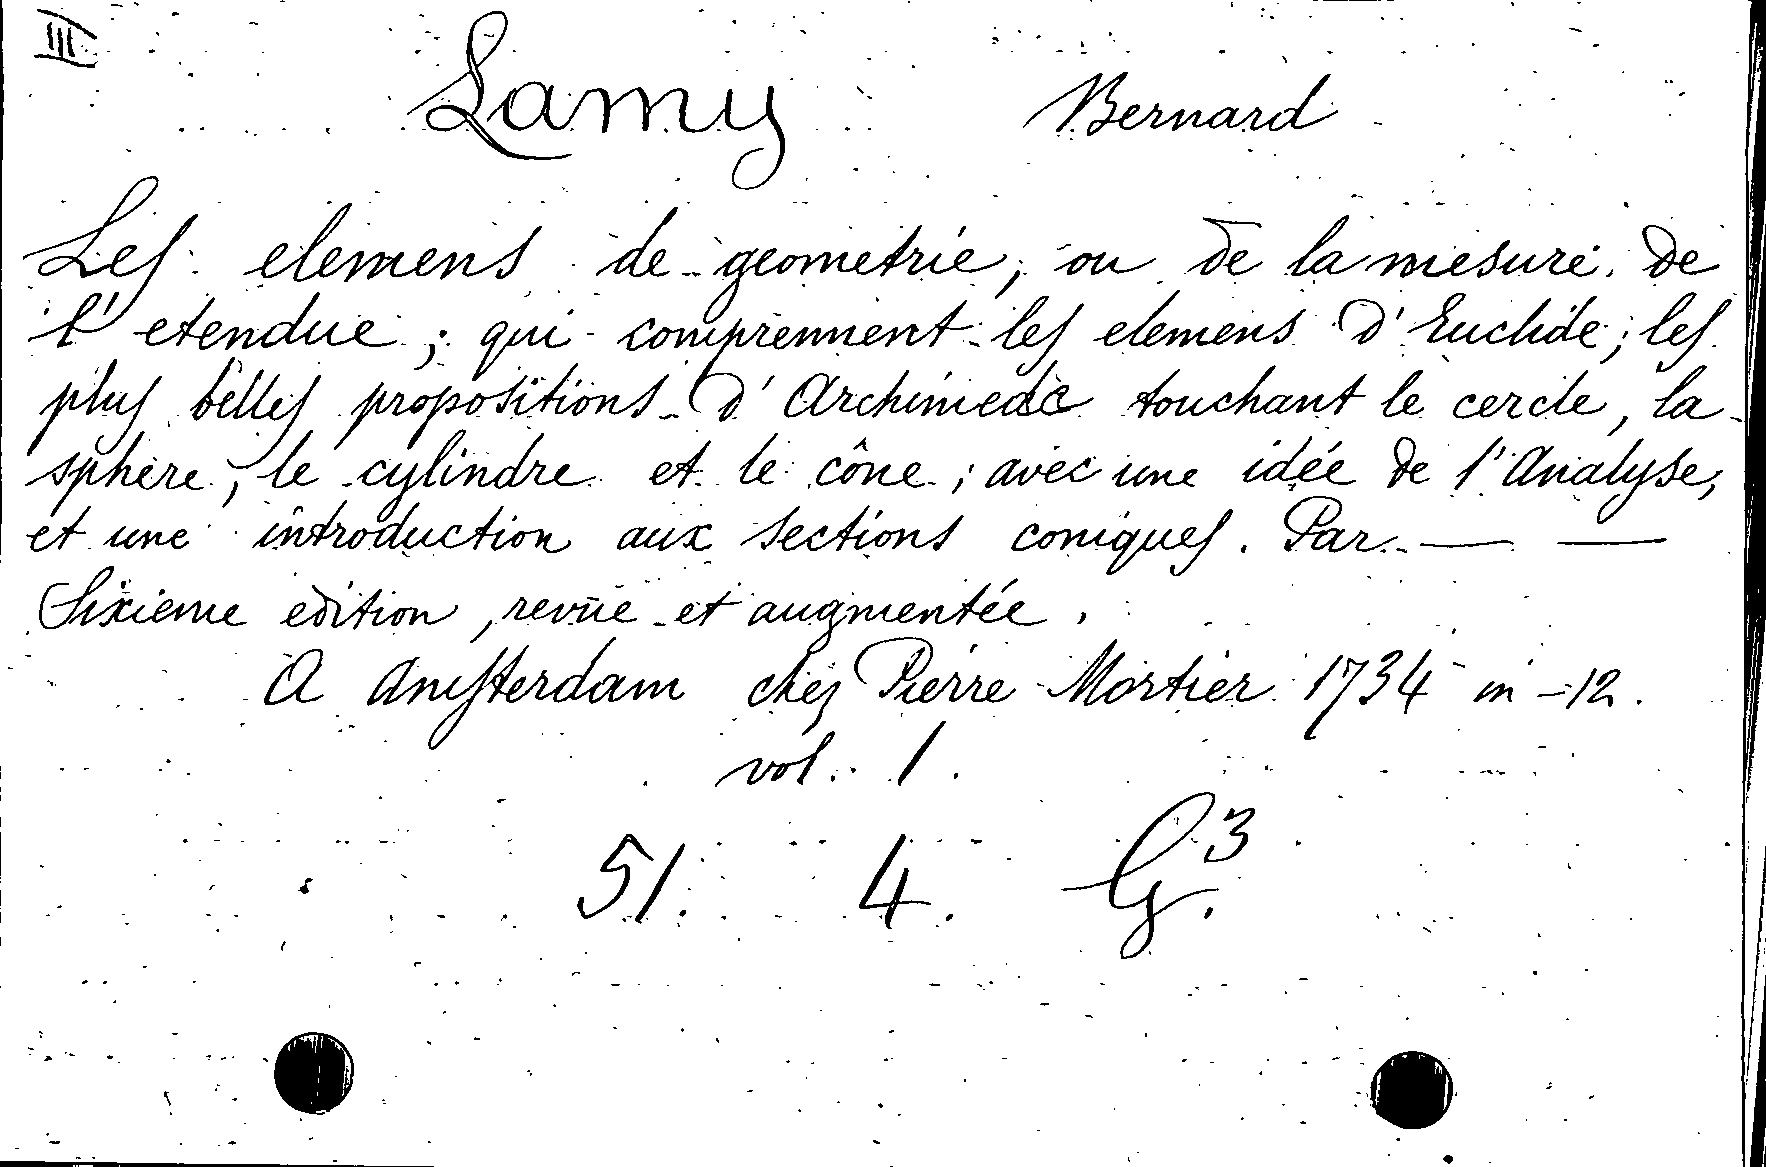 III
Lamy Bernard
Les elemens de geometrie, ou de la mesure de
l'etendue; qui comprennent les elemens d'Euclide; les
plus belles propositions d'Archimede touchant le cercle, la
sphere, le cylindre et le cône; avec une idée de l'Analyse,
et une introduction aux sections coniques. Par — —
Sixieme edition, revue et augmentée.
A Amsterdam chez Pierre Mortier 1734 in-12.
vol. 1.
51. 4. G.³